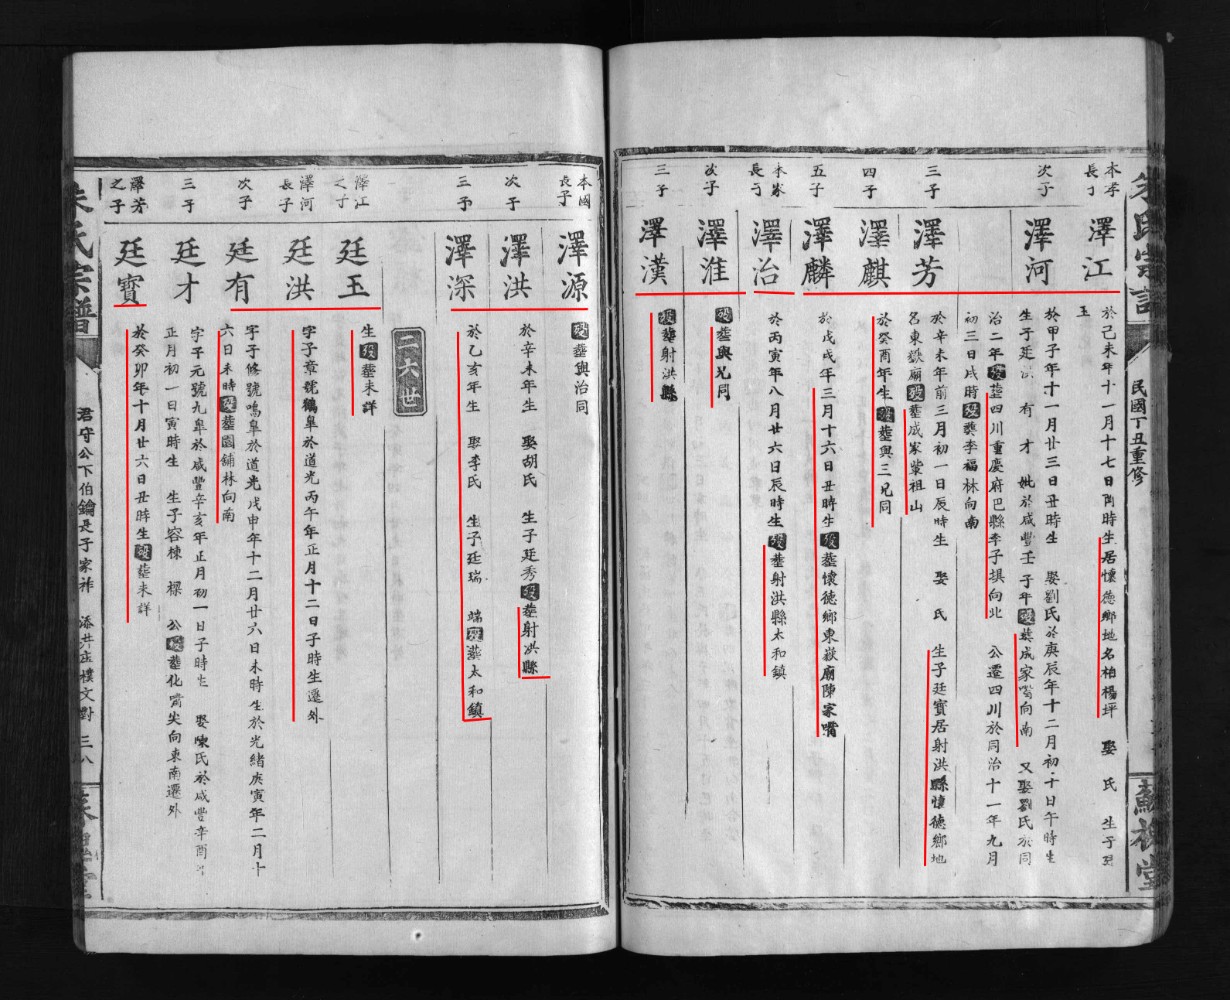 民國丁丑重修
本孝長子
澤江
於己未年十一月十七日酉時生居懷德鄉地名柏楊坪 娶 氏 生子廷
玉
次子
澤河
於甲子年十一月廿三日丑時生 娶劉氏於庚辰年十二月初十日午時生
生子廷洪 有 才 妣於咸豐壬子年歿葬成家嘴向南 又娶劉氏於同
治二年歿葬四川重慶府巴縣李子損向北 公遷四川於同治十一年九月
初三日戌時歿葬李福林向南
三子
澤芳
於辛未年前三月初一日辰時生 娶 氏 生子廷寶居射洪縣懷德鄉地
名東嶽廟歿葬成家紫祖山
四子
澤麒
於癸酉年生歿葬與三兄同
五子
澤麟
於戊戌年三月十六日丑時生歿葬懷德鄉東嶽廟陳家嘴
本家長子
澤治
於丙寅年八月廿六日辰時生歿葬射洪縣太和鎮
次子
澤淮
歿葬與兄同
三子
澤漢
歿葬射洪縣
本國長子
澤源
歿葬與治同
次子
澤洪
於辛未年生 娶胡氏 生子廷秀歿葬射洪縣
三子
澤深
於乙亥年生 娶李氏 生子廷瑞 端歿葬太和鎮
二六世
澤江之子
廷玉
生歿葬未詳
澤河長子
廷洪
字子章號鶴臯於道光丙午年正月十二日子時生遷外
次子
廷有
字子修號鳴臯於道光戊申年十二月廿六日未時生於光緒庚寅年二月十
六日未時歿葬園鋪林向南
三子
廷才
字子元號九臯於咸豐辛亥年正月初一日子時生 娶陳氏於咸豐辛酉年
正月初一日寅時生 生子容棟 樑 公歿葬化 尖向東南遷外
澤芳之子
廷寶
於癸卯年十月廿六日丑時生歿葬未詳
朱氏宗譜
君守公下伯鑰長子家祚 添井庄樸文對 三八